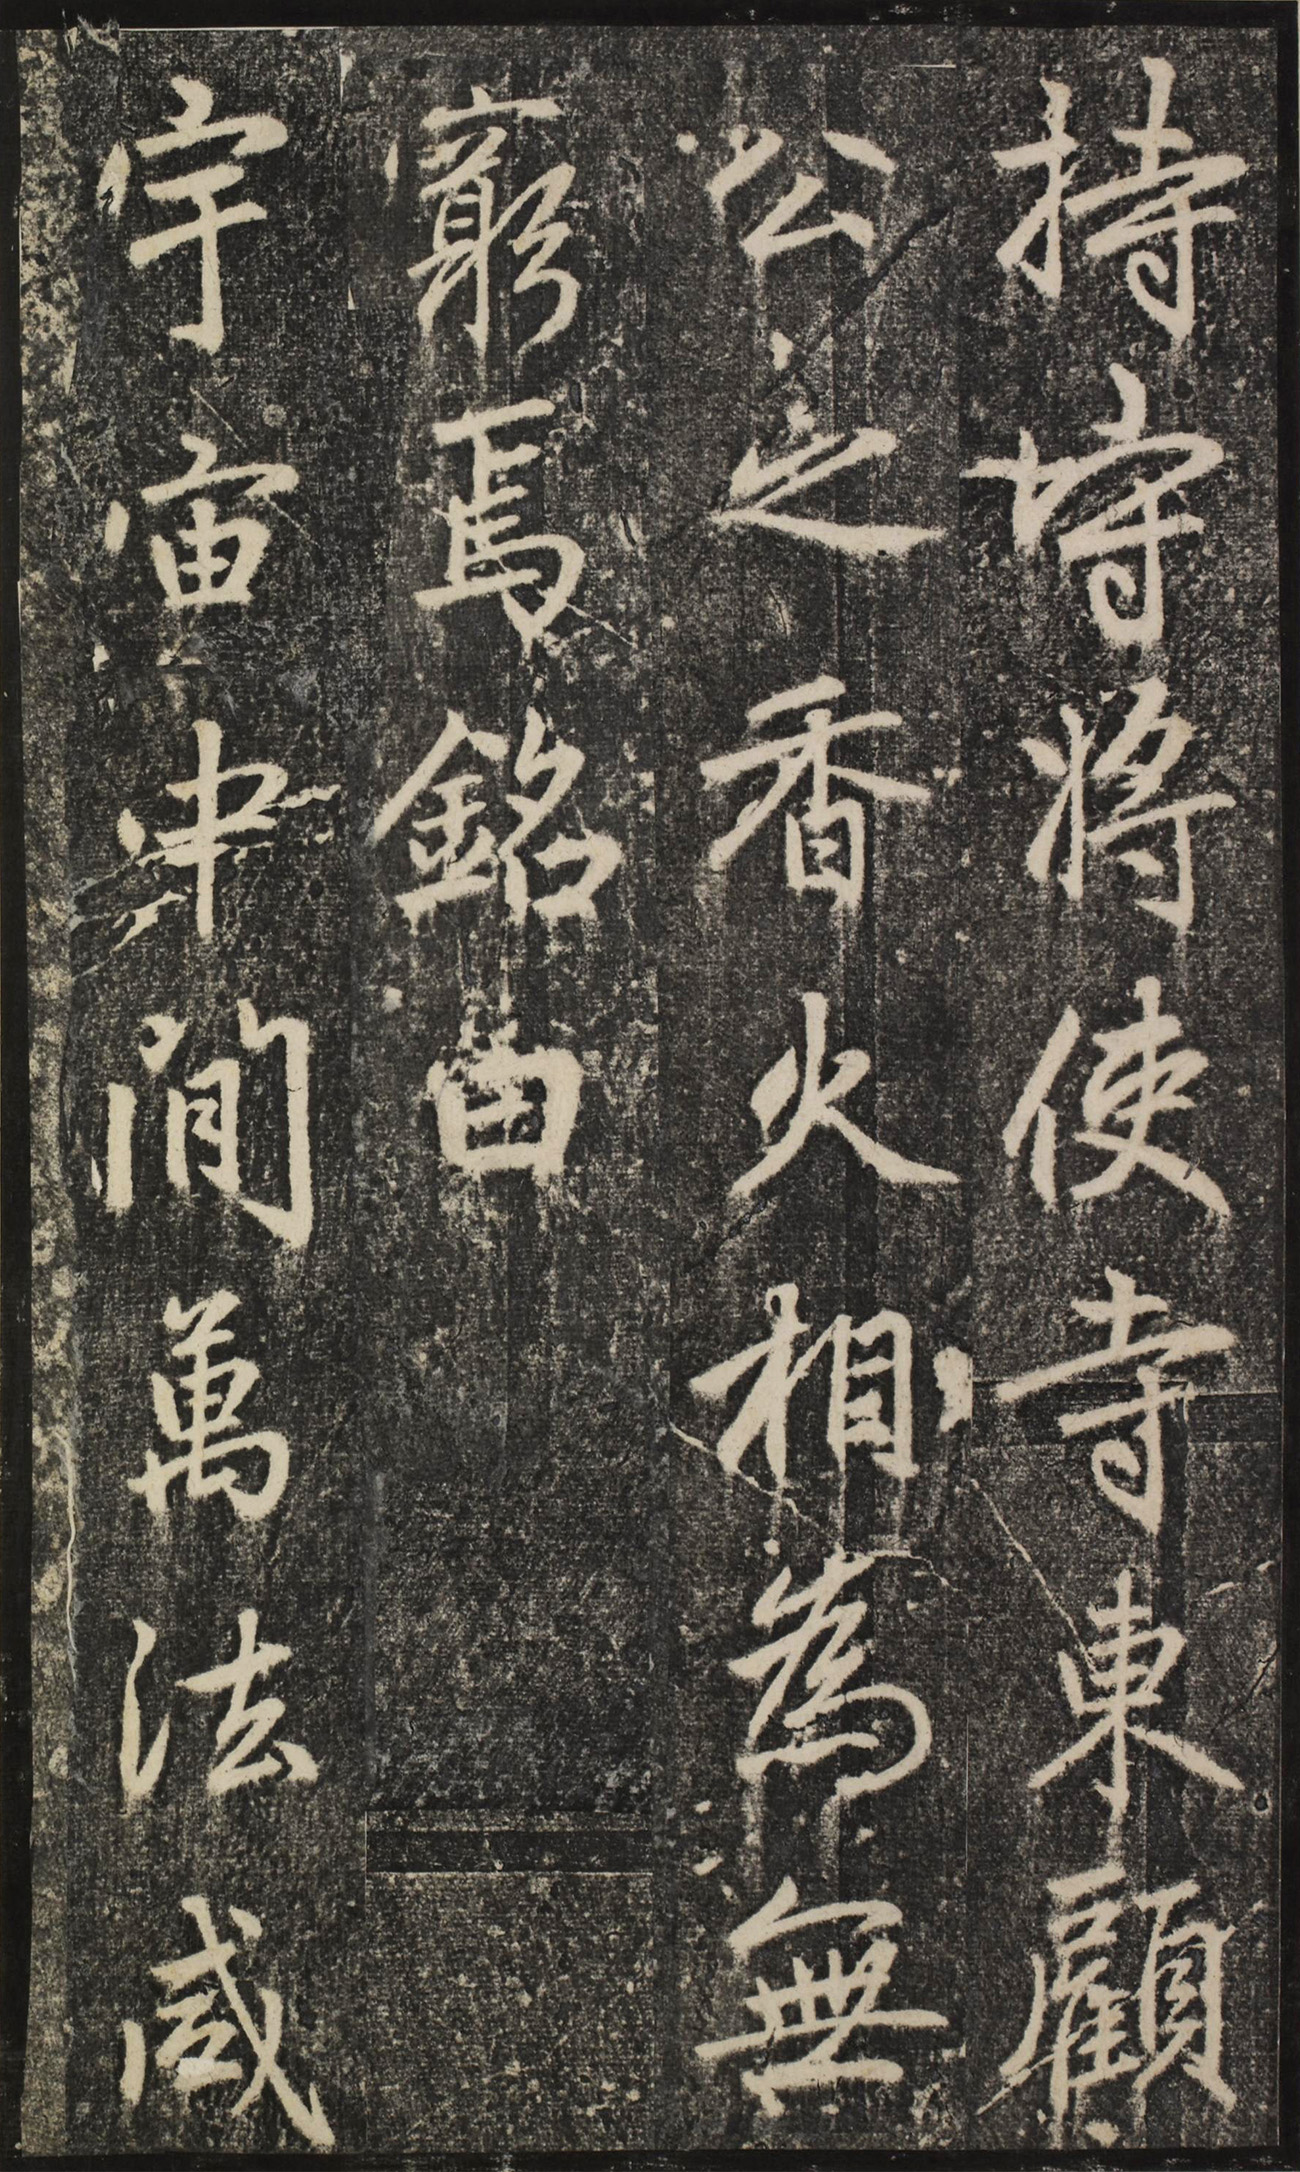 持將使寺東顧
公之香火相為無
窮焉銘曰
宇宙中間萬法咸